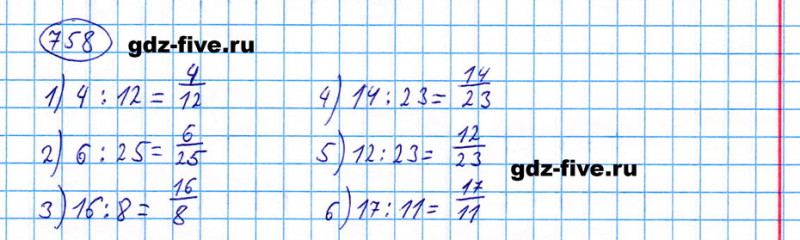 758 gdz-five.ru
1) 4 : 12 = 4/12
4) 14 : 23 = 14/23
2) 6 : 25 = 6/25
5) 12 : 23 = 12/23
gdz-five.ru
3) 16 : 8 = 16/8
6) 17 : 11 = 17/11